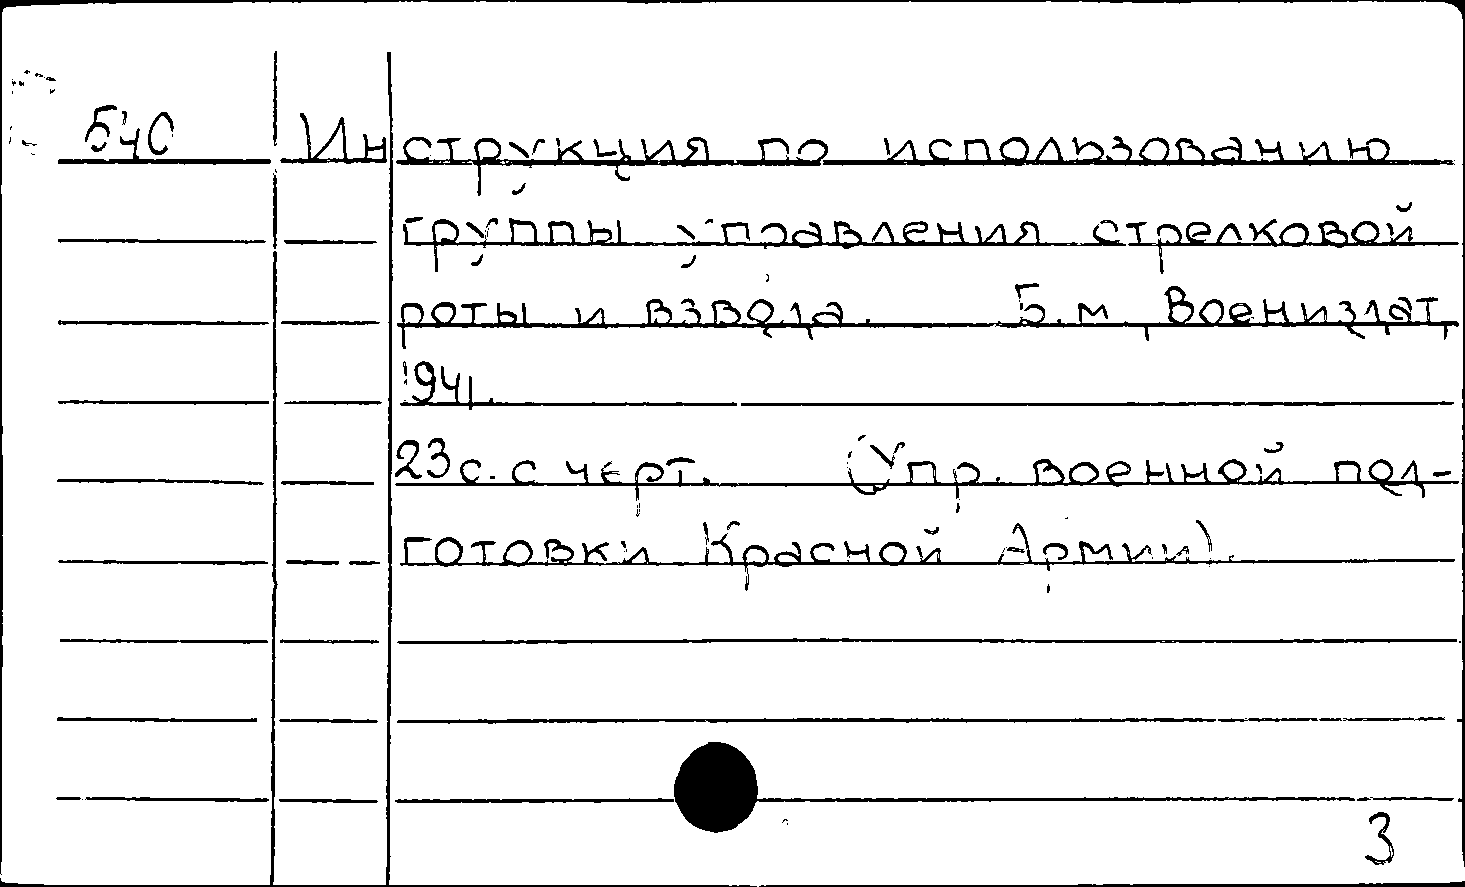 540 Инструкция по использованию
группы управления стрелковой
роты и взвода. Б.м, Воениздат,
1941.
23 с. с черт. (Упр. военной под-
готовки Красной Армии).
3